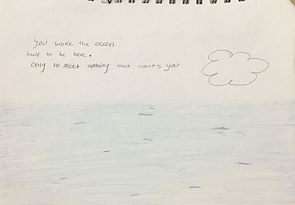 you broke the ocean
half to be here.
only to meet nothing that wants you